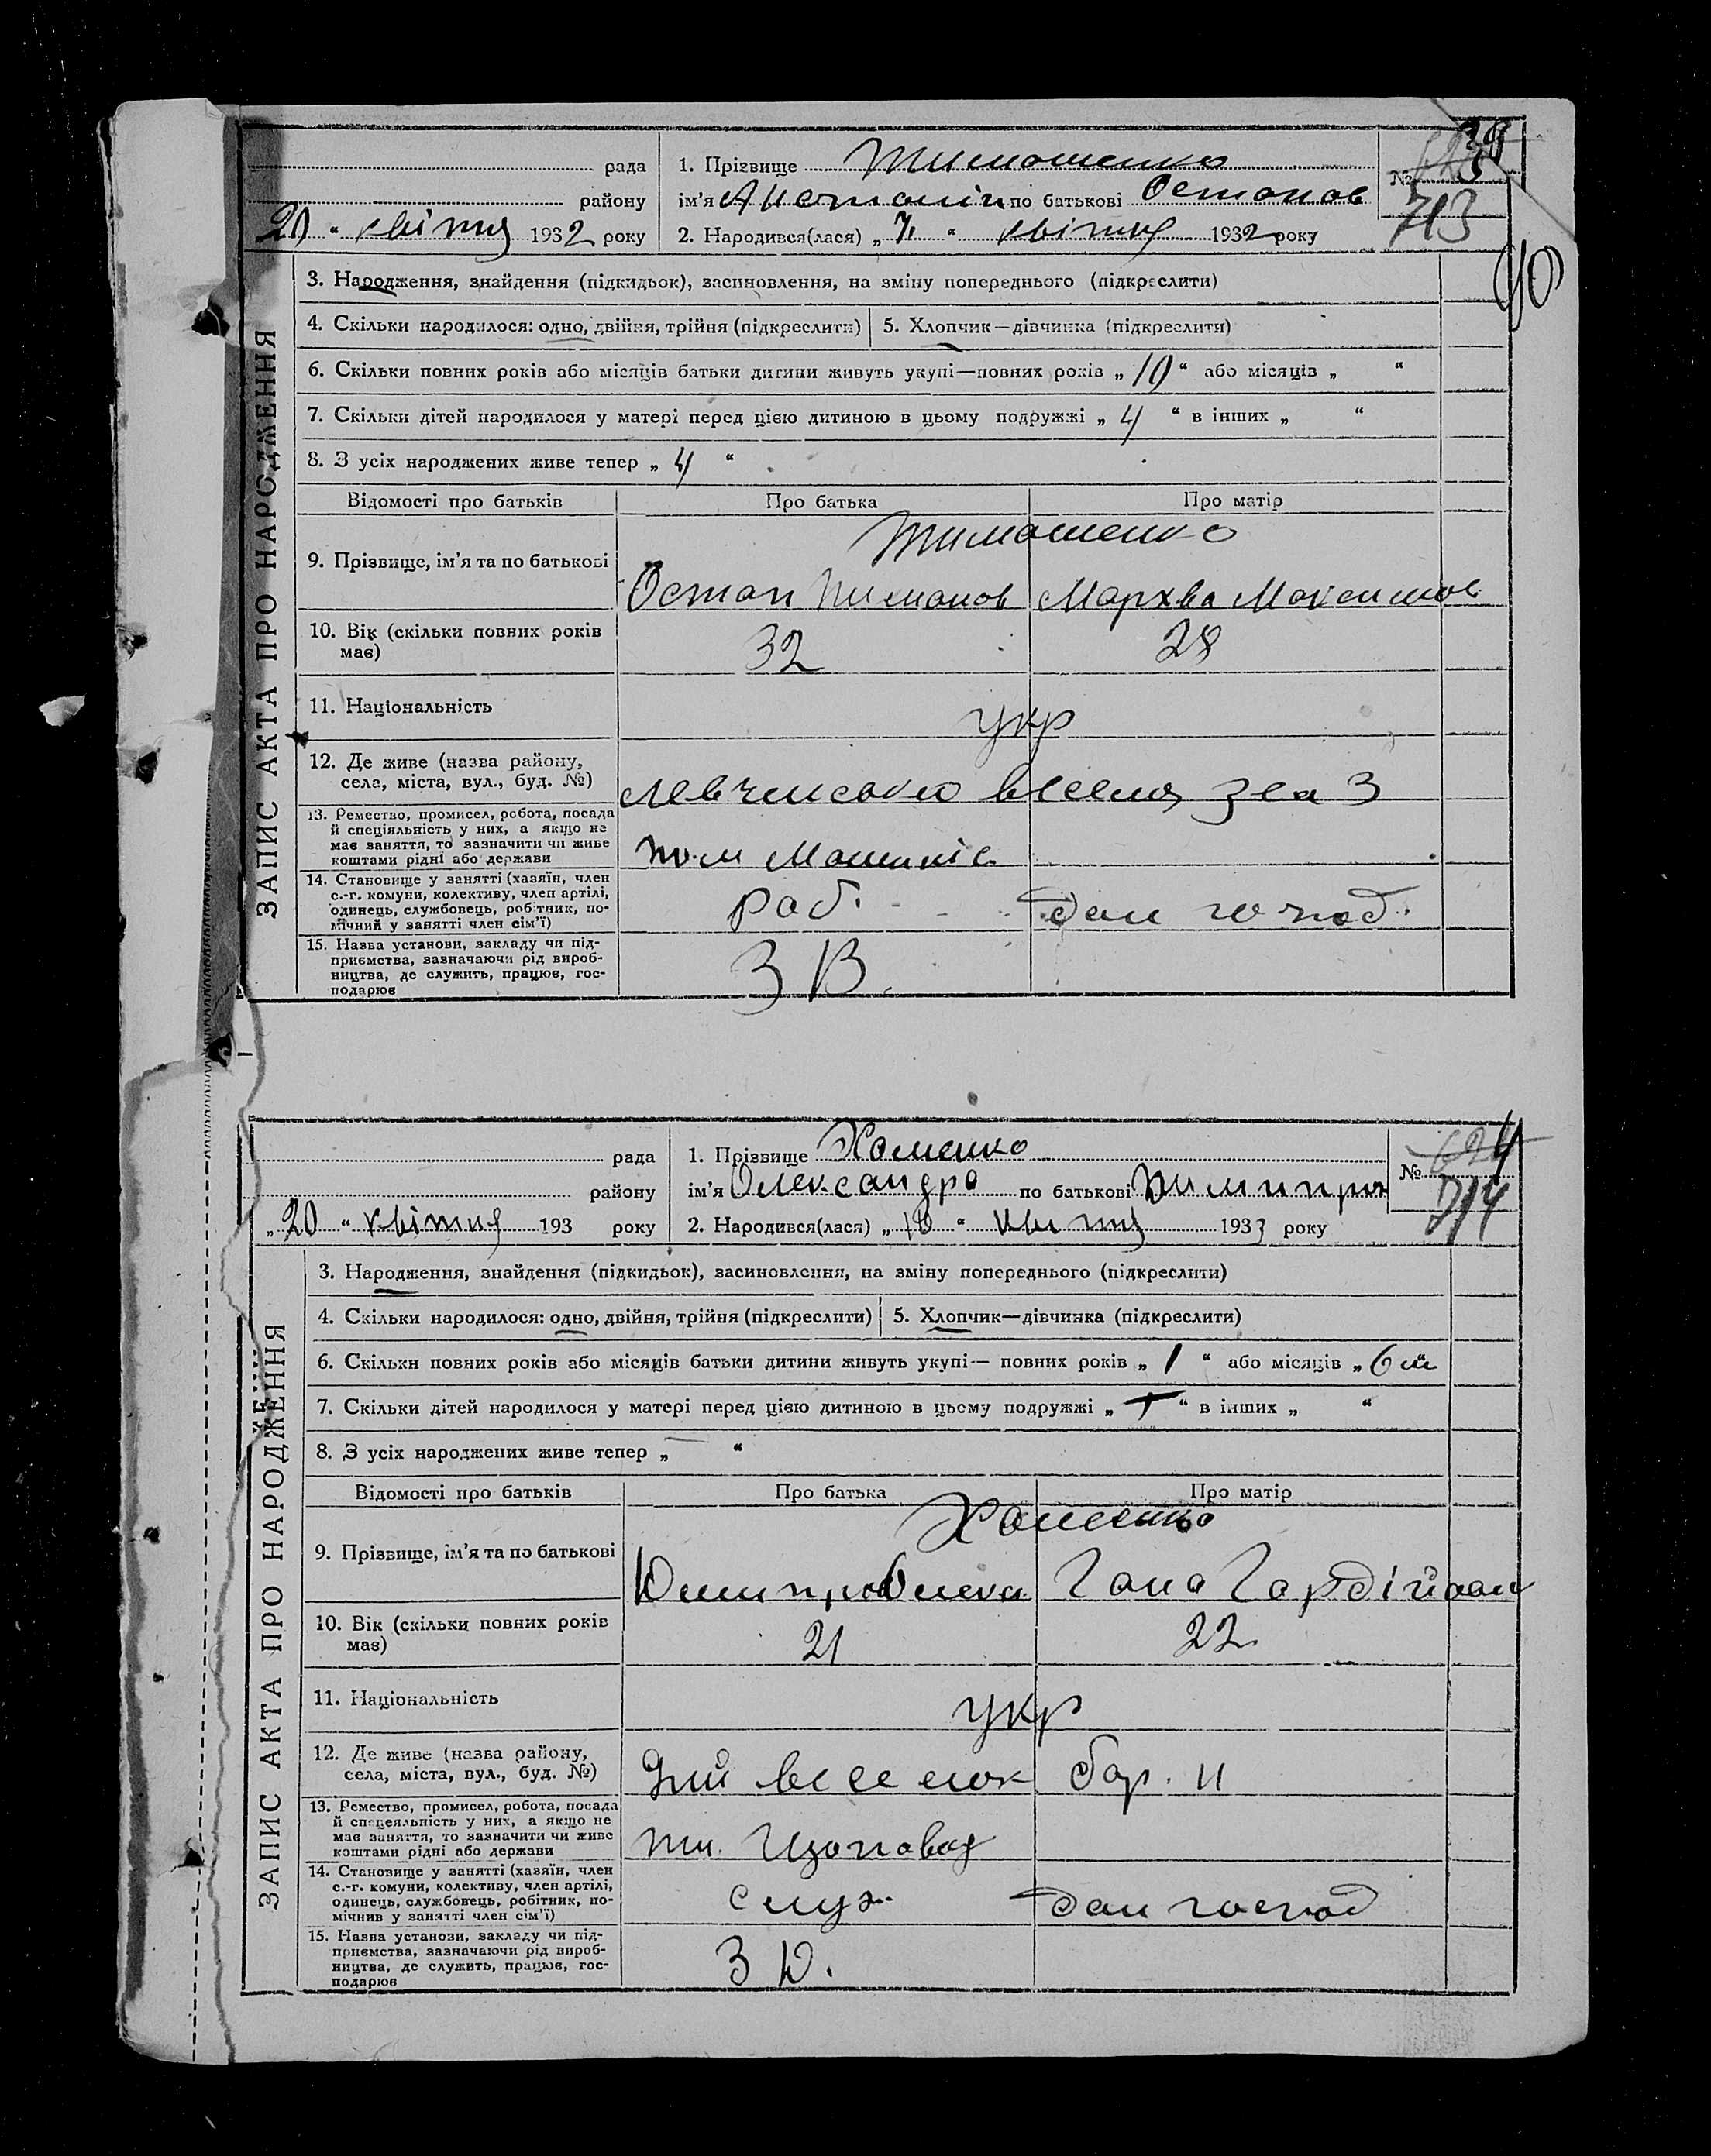 рада
1. Прізвище Тимошенко
38
району
ім'я Анатолій по батькові Остапов
№ 713
20 " квітня 1932 року
2. Народився(лася) „ 7 " квітня 1932 року
40
ЗАПИС АКТА ПРО НАРОДЖЕННЯ
3. Народження, знайдення (підкидьок), засиновлення, на зміну попереднього (підкреслити)
4. Скільки народилося: одно, двійня, трійня (підкреслити) 5. Хлопчик—дівчинка (підкреслити)
6. Скільки повних років або місяців батьки дитини живуть укупі—повних років „ 10 " або місяців „ "
7. Скільки дітей народилося у матері перед цією дитиною в цьому подружжі „ 4 " в інших „ "
8. З усіх народжених живе тепер „ 4 "
Відомості про батьків Про батька Про матір
Тимошенко
9. Прізвище, ім'я та по батькові
Остап Тимонов Мархва Максимов
10. Вік (скільки повних років має) 32 28
11. Національність укр
12. Де живе (назва району, села, міста, вул., буд. №)
13. Ремество, промисел, робота, посада й спеціяльність у них, а якщо не має заняття, то зазначити чи живе коштами рідні або держави
14. Становище у занятті (хазяїн, член с.-г. комуни, колективу, член артілі, одинець, службовець, робітник, помічний у занятті член сім'ї)
Роб. дом господ.
15. Назва установи, закладу чи підприємства, зазначаючи рід виробництва, де служить, працює, господарює
З В.
рада
1. Прізвище Хоменко
району
ім'я Олександр по батькові
№ 714
„ 20 " квітня 193 року
2. Народився(лася) „ 10 " квітня 193 року
ЗАПИС АКТА ПРО НАРОДЖЕННЯ
3. Народження, знайдення (підкидьок), засиновлення, на зміну попереднього (підкреслити)
4. Скільки народилося: одно, двійня, трійня (підкреслити) 5. Хлопчик—дівчинка (підкреслити)
6. Скільки повних років або місяців батьки дитини живуть укупі— повних років „ 1 " або місяців „ 6 м "
7. Скільки дітей народилося у матері перед цією дитиною в цьому подружжі „ " в інших „ "
8. З усіх народжених живе тепер „ — "
Відомості про батьків Про батька Про матір
Хоменко
9. Прізвище, ім'я та по батькові
Гана
10. Вік (скільки повних років має) 21 22
11. Національність укр
12. Де живе (назва району, села, міста, вул., буд. №)
бар. 11
13. Ремество, промисел, робота, посада й спецеяльність у них, а якщо не має заняття, то зазначити чи живе коштами рідні або держави
14. Становище у занятті (хазяїн, член с.-г. комуни, колективу, член артілі, одинець, службовець, робітник, помічнив у занятті член сім'ї)
Служ. дом господ
15. Назва установи, закладу чи підприємства, зазначаючи рід виробництва, де служить, працює, господарює